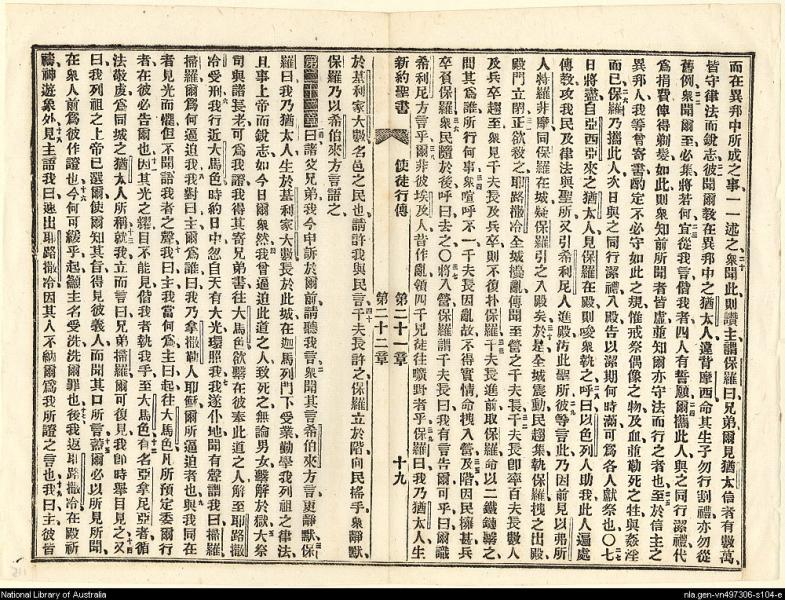 而在異邦中所成之事一一述之衆聞此則讚主謂保羅曰兄弟爾見猶太信者有數萬
皆守律法而銳志彼聞爾教在異邦中之猶太人違背摩西命其生子勿行割禮亦勿從
舊例衆聞爾至必集將若何宜從我言偕我者四人有誓願爾攜此人與之同行潔禮代
爲捐費俾得剃髮如此則衆知前所聞者皆虛並知爾亦守法而行之者也至於信主之
異邦人我等曾寄書酌定不必守如此之規惟戒祭偶像之物及血並勒死之牲與姦淫
而已保羅乃攜此人次日與之同行潔禮入殿告以潔期何時滿可爲各人獻祭也〇七
日將盡自亞西亞來之猶太人見保羅在殿則唆衆執之呼曰以色列人助我此人遍處
傳敎攻我民及律法與聖所又引希利尼人進殿汚此聖所彼等言此乃因前見以弗所
人特羅非摩同保羅在城疑保羅引之入殿矣於是全城震動民趨集執保羅拽之出殿
殿門立閉正欲殺之耶路撒冷全城擾亂傳聞至營之千夫長千夫長卽率百夫長數人
及兵卒趨至衆見千夫長及兵卒則不復扑保羅千夫長進前取保羅命以二鐵鏈繫之
問其爲誰所行何事衆喧呼不一千夫長因亂故不得實情命拽入營及階因民擁甚兵
卒負保羅衆民隨於後呼曰去之〇將入營保羅謂千夫長曰我有言告爾可乎曰爾識
希利尼方言乎爾非彼埃及人昔作亂領四千兇徒往曠野者乎保羅曰我乃猶太人生
新約聖書 使徒行傳 第二十一章 第二十二章 十九
於基利家大數名邑之民也請許我與民言千夫長許之保羅立於階向民搖手衆靜默
保羅乃以希伯來方言語之
第二十二章曰諸父兄弟我今申訴於爾前請聽我言衆聞其言希伯來方言更靜默保
羅曰我乃猶太人生於基利家大數長於此城在迦馬列門下受業勤學我列祖之律法
且事上帝而銳志如今日爾衆然我曾逼迫此道之人致死之無論男女繫解於獄大祭
司與諸長老可爲我證我得其寄兄弟書往大馬色欲繫在彼奉此道之人解至耶路撒
冷受刑我行近大馬色時約日中忽自天有大光環照我我遂仆地聞有聲謂我曰掃羅
掃羅爾爲何逼迫我我對曰主爾爲誰曰我乃拿撒勒人耶穌爾所逼迫者也與我同在
者見光而懼但不聞語我者之聲我曰主我當何爲主曰起往大馬色凡所預定委爾行
者在彼必告爾也因其光之耀目不能見偕我者執我手至大馬色有名亞拿尼亞者循
法敬虔爲同城之猶太人所稱就我立而言曰兄弟掃羅爾可復見我卽時舉目見之又
曰我列祖之上帝已選爾使爾知其旨得見彼義人而聞其口所言蓋爾必以所見所聞
在衆人前爲彼作證也今何可緩乎起籲主名受洗洗爾罪也後我返耶路撒冷在殿祈
禱神遊象外見主語我曰速出耶路撒冷因其人不納爾爲我所證之言也我曰主彼皆
National Library of Australia
nla.gen-vn497306-s104-e